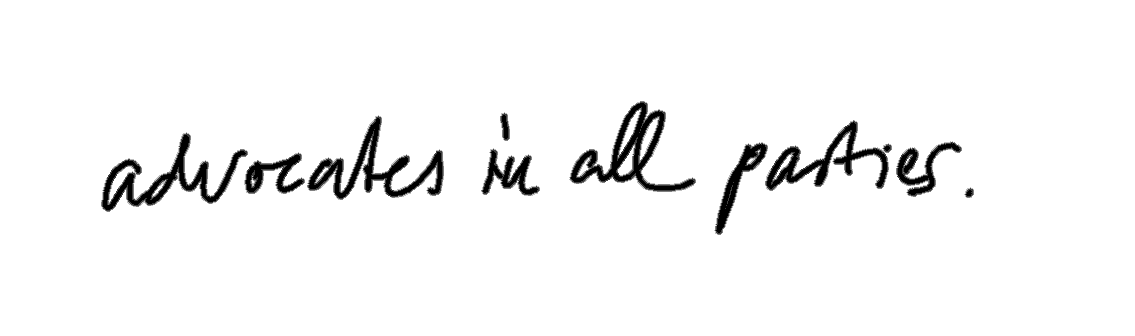 advocates in all parties.